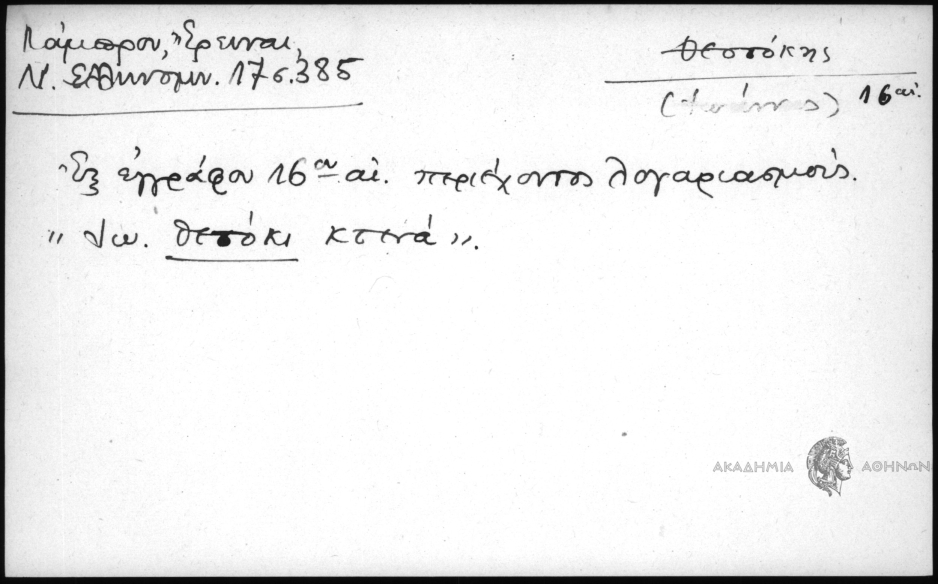 Λάμπρου, Ἔρευναι,
Ν. Ἑλληνομν. 17 σ. 385
Θεοτόκης
(Ἰωάννης) 16 αἰ.
Ἐξ ἐγγράφου 16ου αἰ. περιέχοντος λογαριασμούς.
" Ἰω. Θεοτόκι κτενά ".
ΑΚΑΔΗΜΙΑ ΑΘΗΝΩΝ